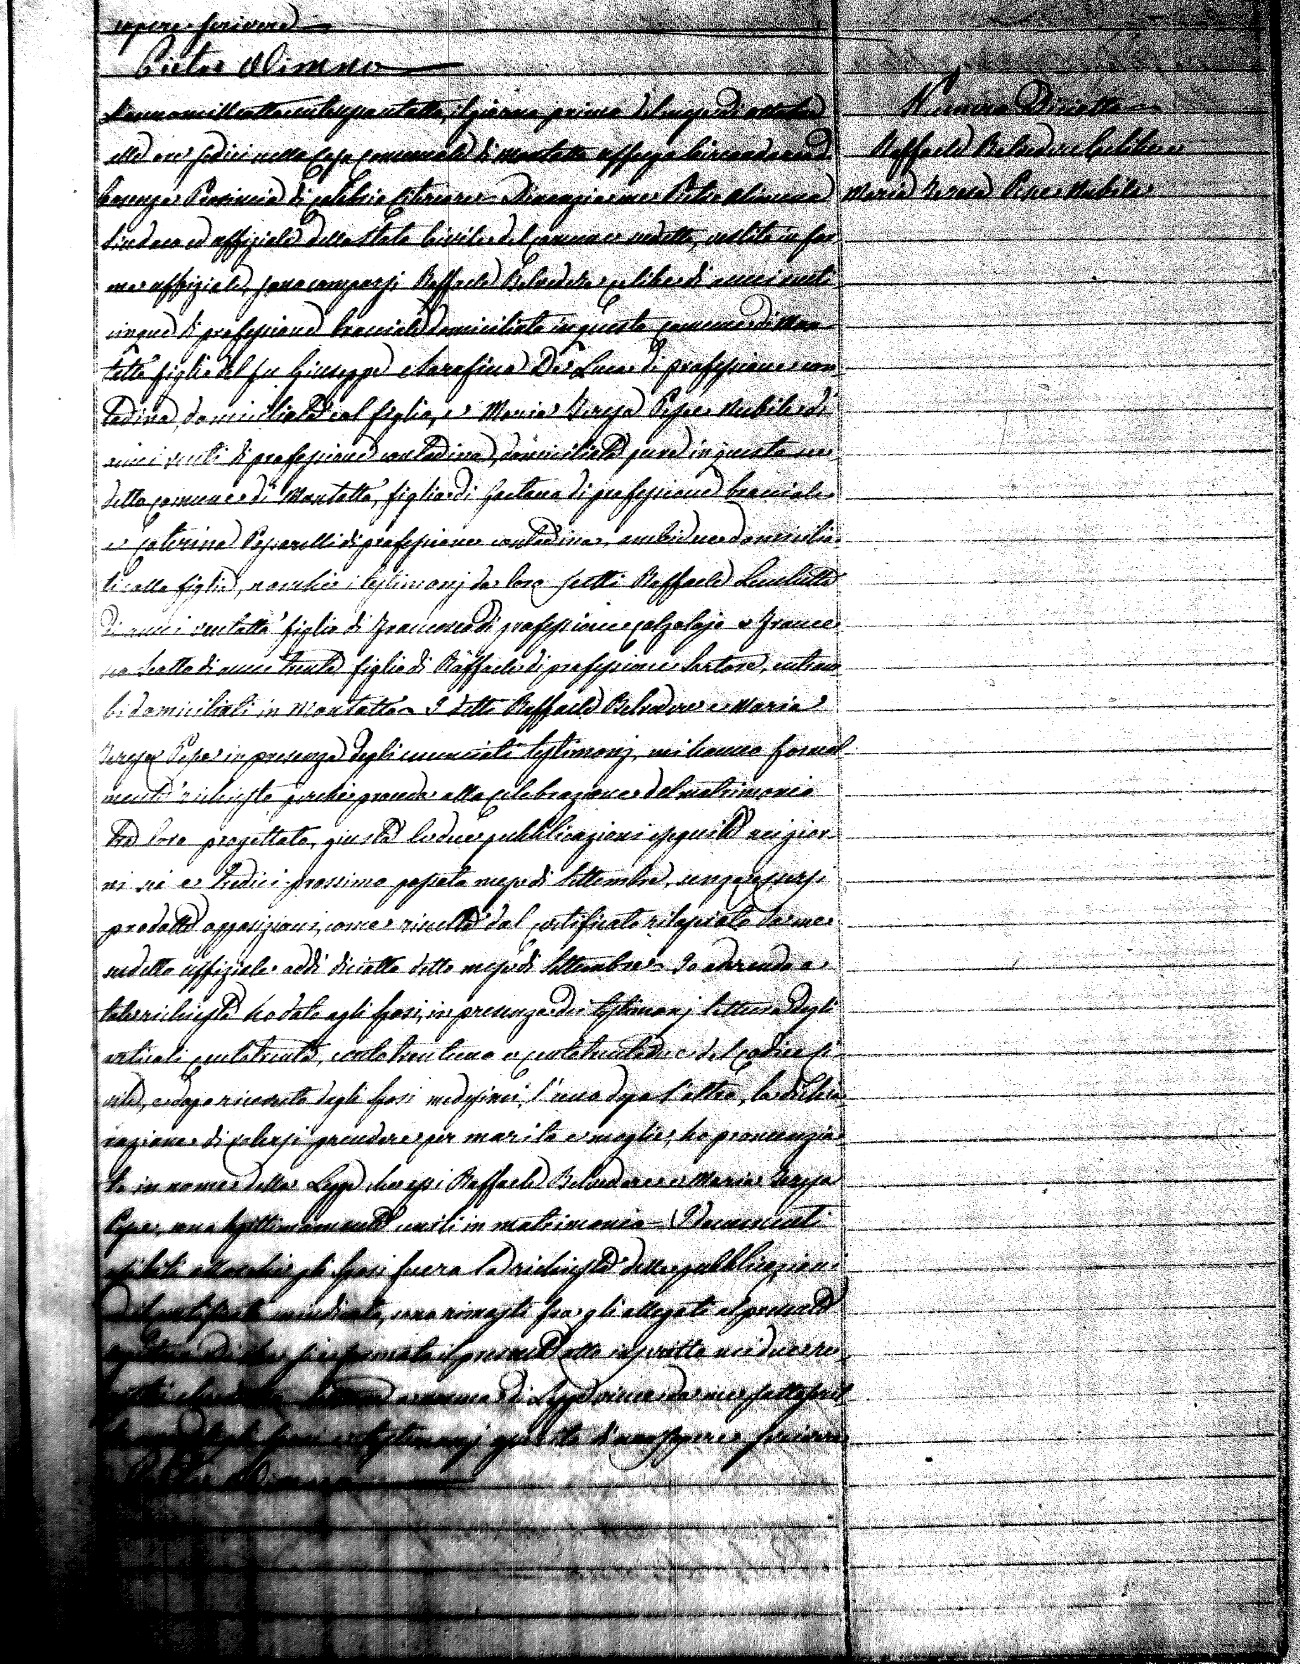 sapere scrivere
Pietro Alimena
L'anno mille ottocento sessantotto, il giorno primo del mese di ottobre
alle ore sedici nella Casa comunale di Montalto Uffugo Circondario di
Cosenza Provincia di Calabria Citeriore Dinanzi a me Pietro Alimena
Sindaco ed uffiziale dello Stato Civile del comune sudetto, vestito in for
ma uffiziale, sono comparsi Raffaele Belvedere celibe di anni venti
cinque di professione bracciale domiciliato in questo comune di Mon
talto figlio del fu Giuseppe e Serafina De Luca di professione con
tadina, domiciliata col figlio, e Maria Teresa Pepe Nubile di
anni venti di professione contadina, domiciliata pure in questo su
detto comune di Montalto, figlia di Gaetano di professione bracciale
e Caterina di professione contadina, ambidue domicilia
ti colla figlia, nonché i testimonj da loro scelti Raffaele
di anni ventotto figlio di Francesco di professione calzolajo e France
sco di anni trenta figlio di Raffaele di professione Sartore, entram
bi domiciliati in Montalto I detti Raffaele Belvedere e Maria
Teresa Pepe in presenza degli enunciati testimonj, mi hanno formal
mente richiesto perché proceda alla celebrazione del matrimonio
tra loro progettato, giusta le due pubblicazioni eseguite nei gior
ni sei e tredici prossimo passato mese di Settembre, senza essersi
prodotte opposizioni, come risulta dal certificato rilasciato da me
sudetto uffiziale addì diciotto detto mese di Settembre Io aderendo a
tale richiesta ho dato agli sposi, in presenza dei testimonj lettura degli
articoli centotrenta, centotrentuno e centotrentadue del codice ci
vile, e dopo ricevuto dagli sposi medesimi, l'uno dopo l'altro, la dichia
razione di volersi prendere per marito e moglie, ho pronunzia
to in nome della Legge che essi Raffaele Belvedere e Maria Teresa
Pepe, sono legittimamente uniti in matrimonio I documenti
esibiti gli sposi fuora la richiesta delle pubblicazioni
ed il certificato sono rimasti fra gli allegati al presente
registro ed si è formato il presente atto inscritto nei due re
gistri a norma di Legge viene da me sottoscrit
to sposi e testimonj di non sapere scrivere
Pietro Alimena
Numero Diciotto
Raffaele Belvedere Celibe e
Maria Teresa Pepe Nubile